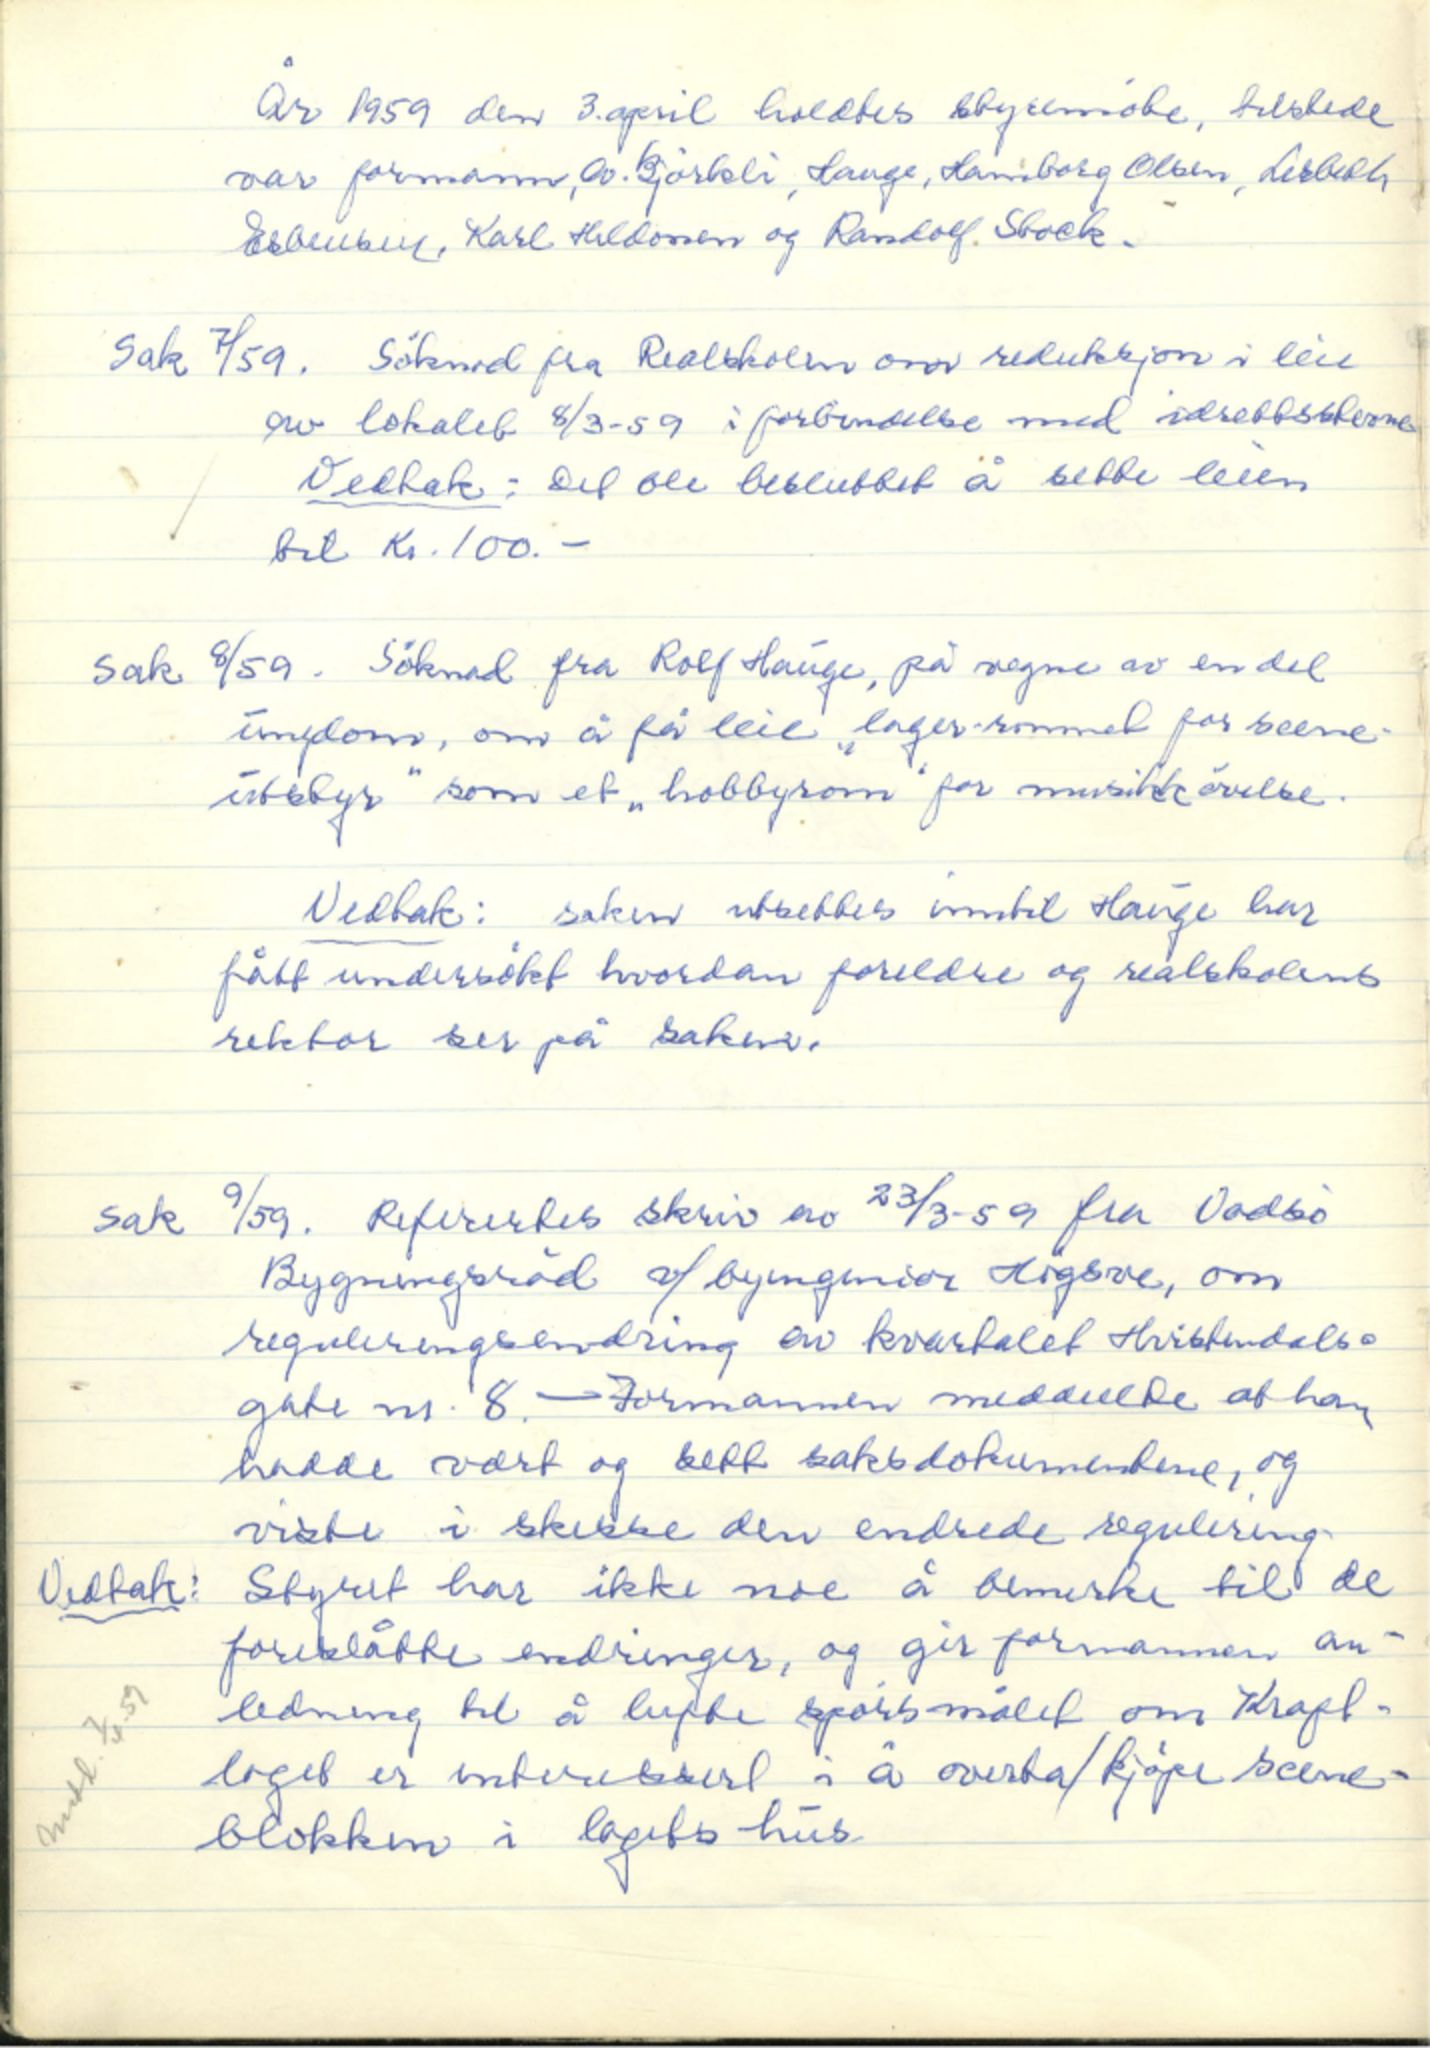 År 1959 den 3. april holdtes styremöte, tilstede
var formann, Av. Björkli, Hauge, Hamborg Olsen, Lisbeth
Esbensen, Karl Heldonen og Randolf Stock.
Sak 7/59. Söknad fra Realskolen om reduksjon i leie
av lokalet 8/3-59 i forbindelse med idrettsstevne
Vedtak: Det ble besluttet å sette leien
til Kr. 100.-
Sak 8/59. Söknad fra Rolf Hauge, på vegne av en del
ungdom, om å få leie „lager-rommet for scene-
utstyr" som et „hobbyrom" for musikkövelse.
Vedtak: saken utsettes inntil Hauge har
fått undersökt hvordan foreldre og realskolens
rektor ser på saken.
Sak 9/59. Referertes skriv av 23/3-59 fra Vadsö
Bygningsråd v/ byingeniör Högsve, om
reguleringsendring av kvartalet Hvistendals-
gate nr. 8. — Formannen meddelte at han
hadde vært og sett saksdokumentene, og
viste i skisse den endrede regulering
Vedtak: Styret har ikke noe å bemerke til de
foreslåtte endringer, og gir formannen an-
ledning til å lufte spörsmålet om Kraft-
laget er interessert i å overta/kjöpe scene-
blokken i lagets hus
Medd. 7/4-59